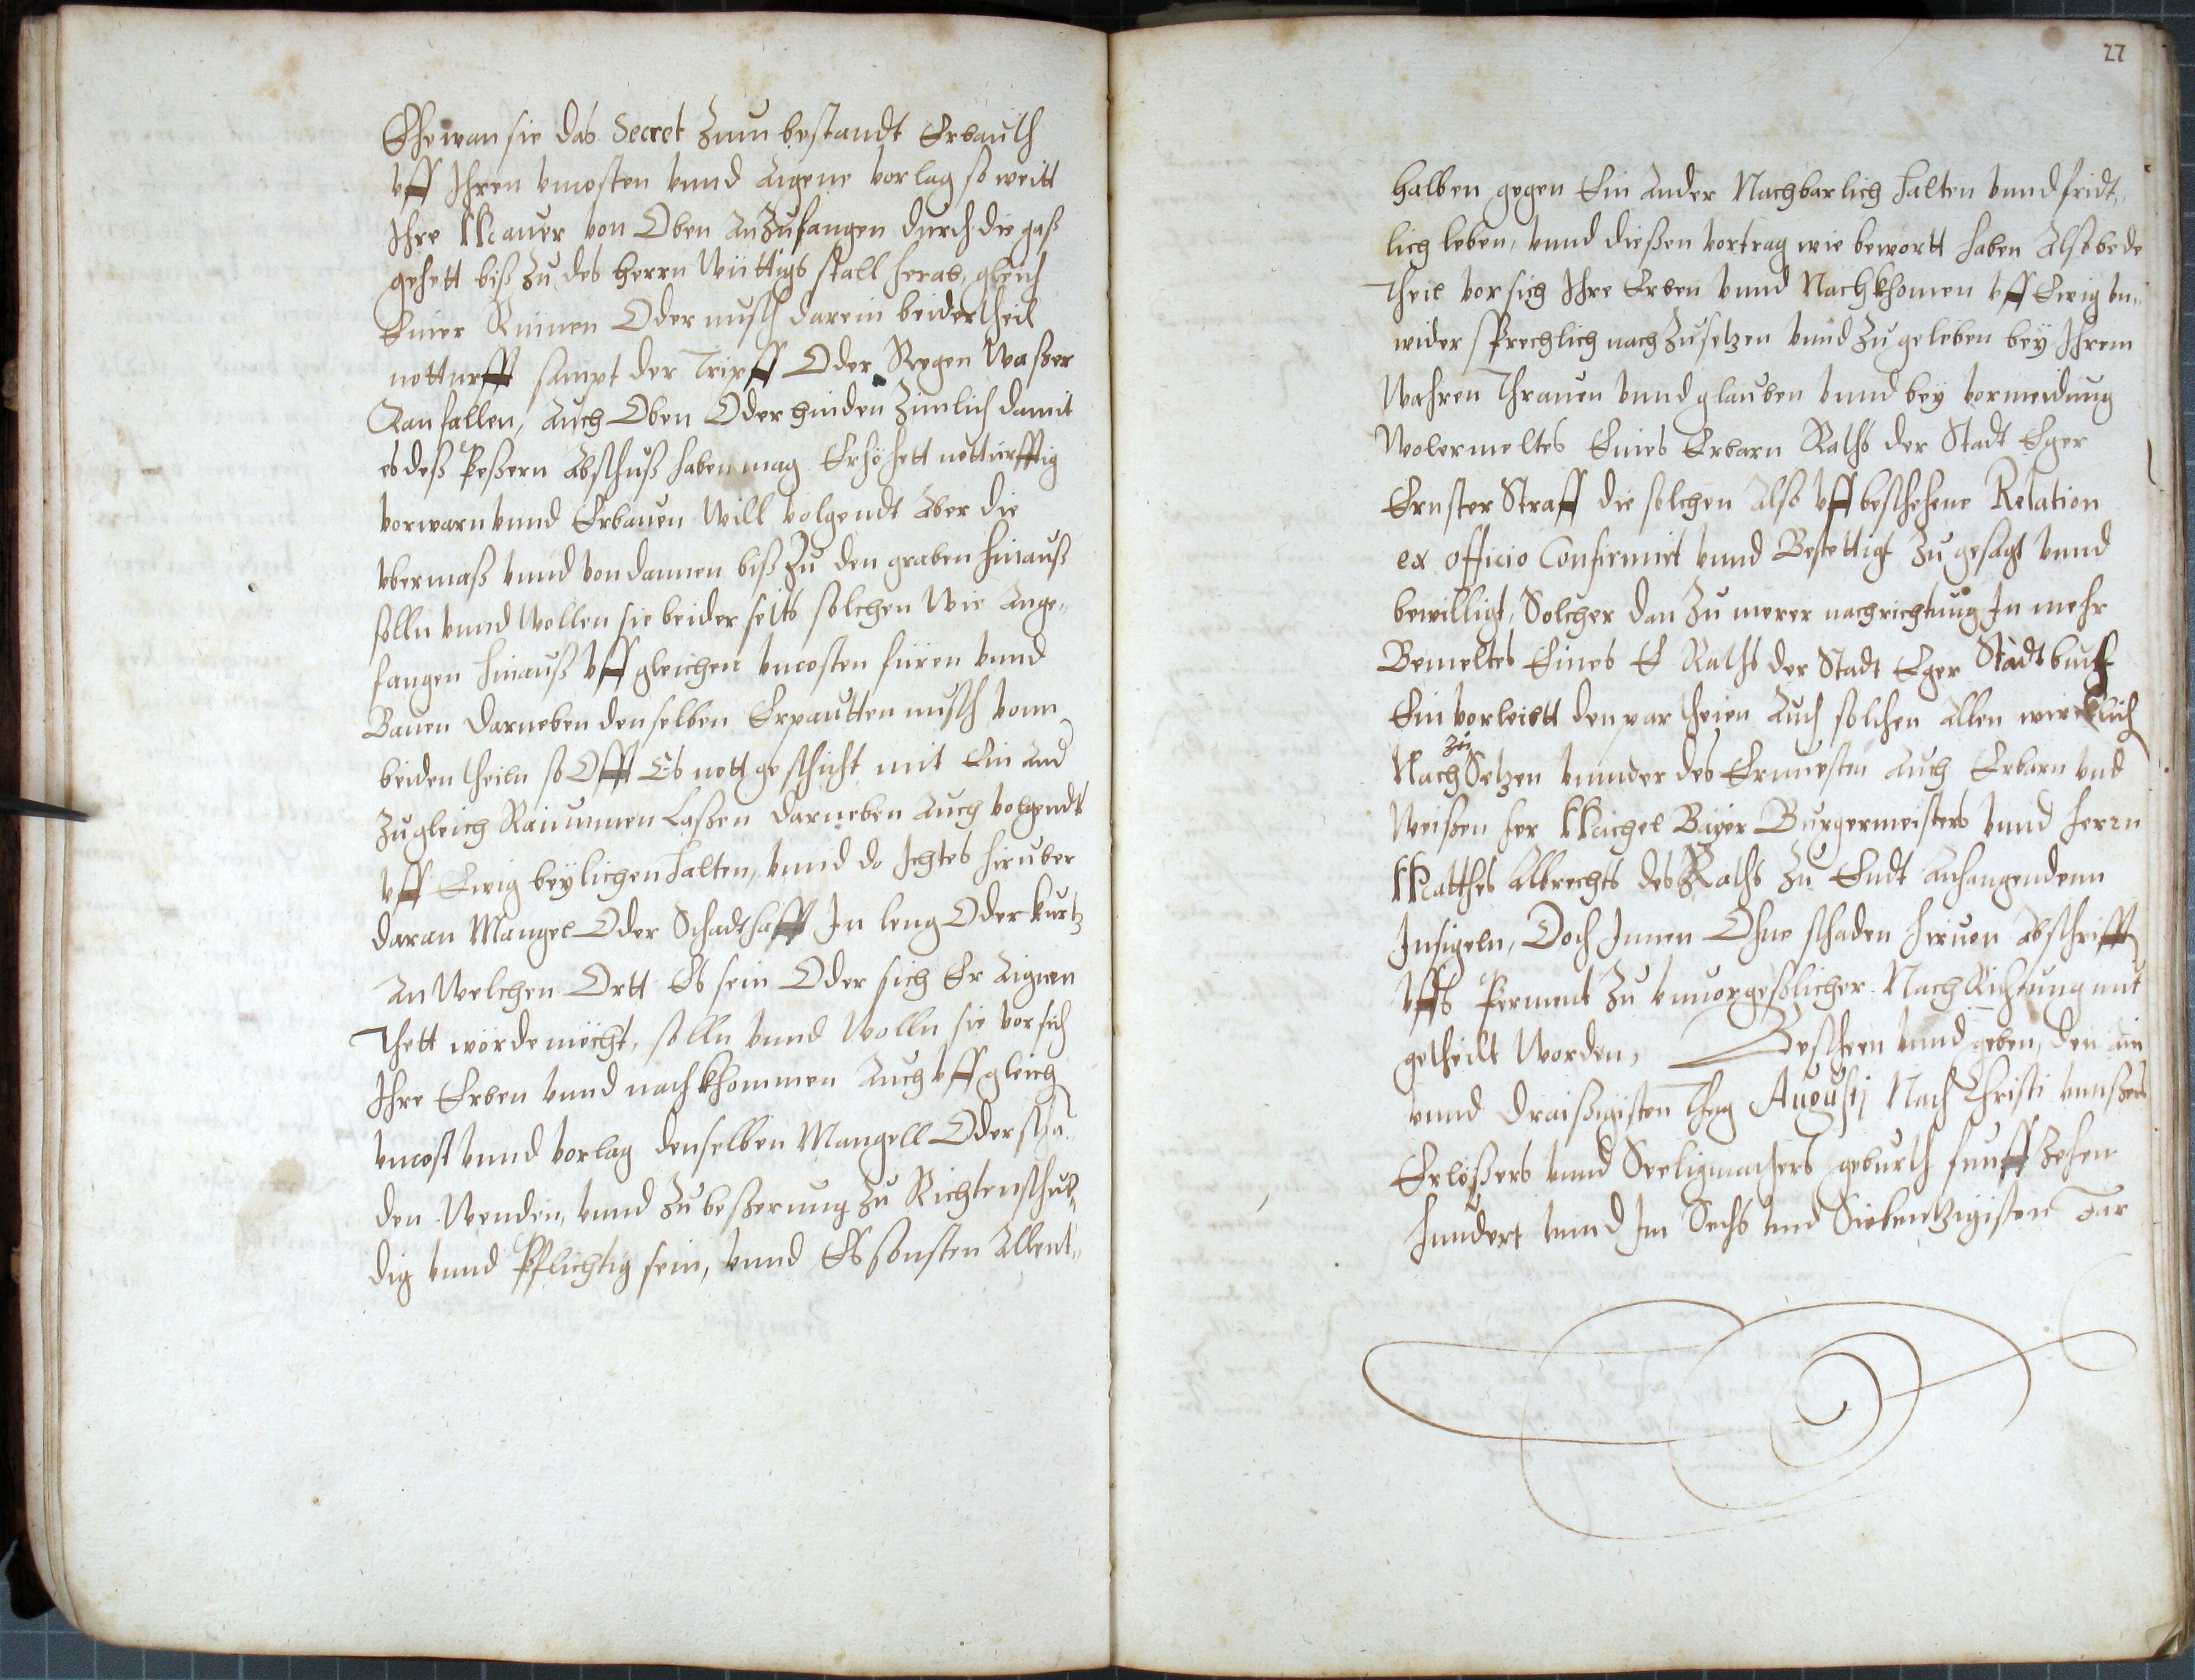 Ehe wan sie das Secret Zum bestandt Erbauth
vff Ihren vncosten vnnd Aigene vorlag so weitt
Ihre Mauer von Oben Anzufangen durch die gaß
gehett biß Zu des herrn Wüttigs stall herab, gleich
Einer Rinnen Oder nusch darein beidertheil
notturfft sampt der Tripff Oder Regen Waßer
Kan fallen, Auch Oben Oder hinden Zimlich damit
es deß Peßern Abschuß haben mag Erhöhett notturfftig
vorwarn vnnd Erbauen Will volgendt Aber die
vbermaß vnnd von dannen biß Zu den graben hinauß
solln vnnd Wollen sie beiderseits solchen Wie Ange„
fangen hinauß vff gleichen vncosten füren vnnd
Bauen darneben denselben Erpautten nusch vonn
beiden theiln so Offt Es nott geschicht mit Ein And
Zugleich Raummen Laßen darneben Auch volgendt
vff Ewig beylichen halten, vnnd do Ichtes hieruber
daran Mangel Oder Schadthafft In leng Oder kurtz
An Welchen Ortt Es sein Oder sich Er Aignen
Thett wörde möcht, solln vnnd Wolln sie vor sich
Ihre Erben vnnd nachkhommen Auch vff gleich
vncost vnnd vorlag denselben Mangell Oder scha
den Wenden, vnnd Zu beßerung Zu Richten schul„
dig vnnd Pflichtig sein, vnnd Eß sonsten Allent„
22
halben gegen Ein Ander Nachbarlich halten vnnd fridt„
lich leben, vnnd dießen vortrag wie bewortt haben Alß bede
Theil vor sich Ihre Erben vnnd Nachkhomen vff Ewig vn„
widersprechlich nach Zusetzen vnnd Zu geleben bey Ihrem
Wahren Thrauen vnnd glauben vnnd bey vormeidung
Wolermeltes Eines Erbarn Raths der Stadt Eger
Ernster Straff die solchen Also vff beschehene Relation
ex officio Confirmirt vnnd Bestettigt Zu gesagt vnnd
bewilligt, Solcher dan Zu merer nachrichtung In mehr
Bemeltes Eines E Raths der Stadt Eger Stadtbuch
Ein vorleibtt den partheien Auch solchen Allen wircklich
Nach zu Setzen vnnder des Ernuesten Auch Erbarn vnd
Weißen her Michel Bayer Burgermeisters vnnd herrn
Matthes Albrechts des Raths Zu Endt Anhangendenn
Insigeln, Doch Innen Ohne schaden hieuon Abschrifft
vffs Perment Zu vnuorgeßlicher NachRichtung mit
getheilt Worden, Geschehen vnnd geben, den ain
vnnd draißigisten Thag Augustj Nach Christi vnnßers
Erlößers vnnd Seeligmachers geburth funffzehen
hundert vnnd Im Sechs vnd Siebentzigisten Jar